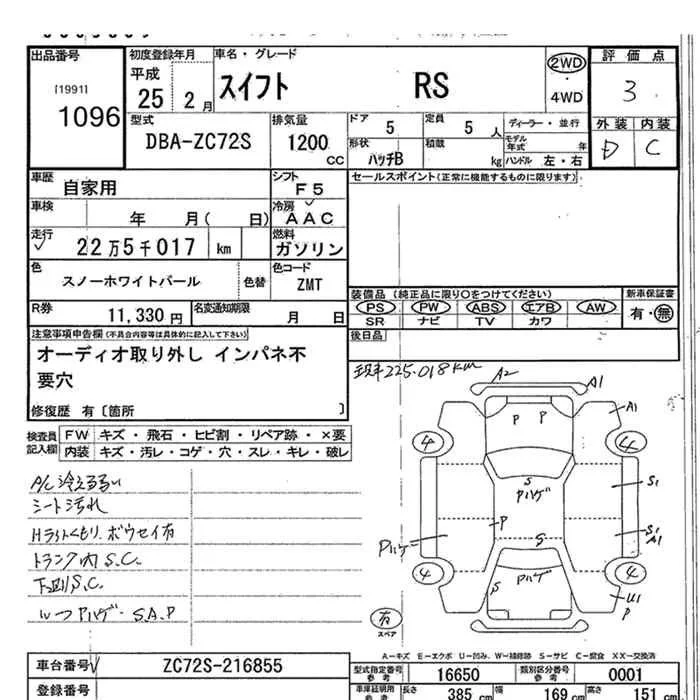 出品番号 初度登録年月 車名・グレード 評価点
[1991] 平成 スイフト RS 2WD
1096 25 2月 4WD 3
型式 排気量 ドア 定員 ディーラー・並行 外装 内装
DBA-ZC72S 1200 cc 5 5人 モデル年式 年 D C
形状 ハッチB 積載 kg ハンドル 左・右
車歴 自家用 シフト F5 セールスポイント(正常に機能するものに限ります)
車検 年 月( 日) 冷房 AAC
走行 22万5千017 km 燃料 ガソリン
色 スノーホワイトパール 色替 色コード ZMT
装備品(純正品に限り○をつけてください) 新車保証書
R券 11,330円 名変通知期限 月 日
PS PW ABS エアB AW 有・無
SR ナビ TV カワ
注意事項申告欄(不具合内容等は具体的に記入して下さい) 後日品
オーディオ取り外し インパネ不
要穴
現車225.018km
修復歴 有〔箇所 〕
A2 A1
A1
P P
検査員記入欄 FW キズ・飛石・ヒビ割・リペア跡・×要
内装 キズ・汚レ・コゲ・穴・スレ・キレ・破レ
4 4
A/C冷え弱い
S S1
Pハゲ
シート汚れ
Hライトくもりボウセイ有
P S1
A1
トランク内S.C.
Pハゲ S
下回りS.C.
4 Pハゲ 4
S
Pハゲ・S.A.P
U1
P
有
スペア
A-キズ E-エクボ U-凹み W-補修跡 S-サビ C-腐食 XX-交換済
車台番号 ZC72S-216855 型式指定番号参考 16650 類別区分番号参考 0001
登録番号 車庫証明用参考 長さ 385cm 幅 169cm 高さ 151cm